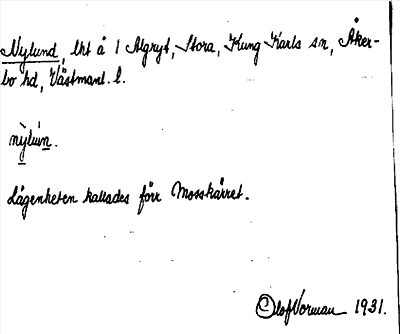 Nylund, lht å 1 Algryt, Stora, Kung Karls sn, Åker-
bo hd, Västmanl. l.
nỳlún.
Lägenheten kallades förr Mosskärret.
Olof Vorman 1931.